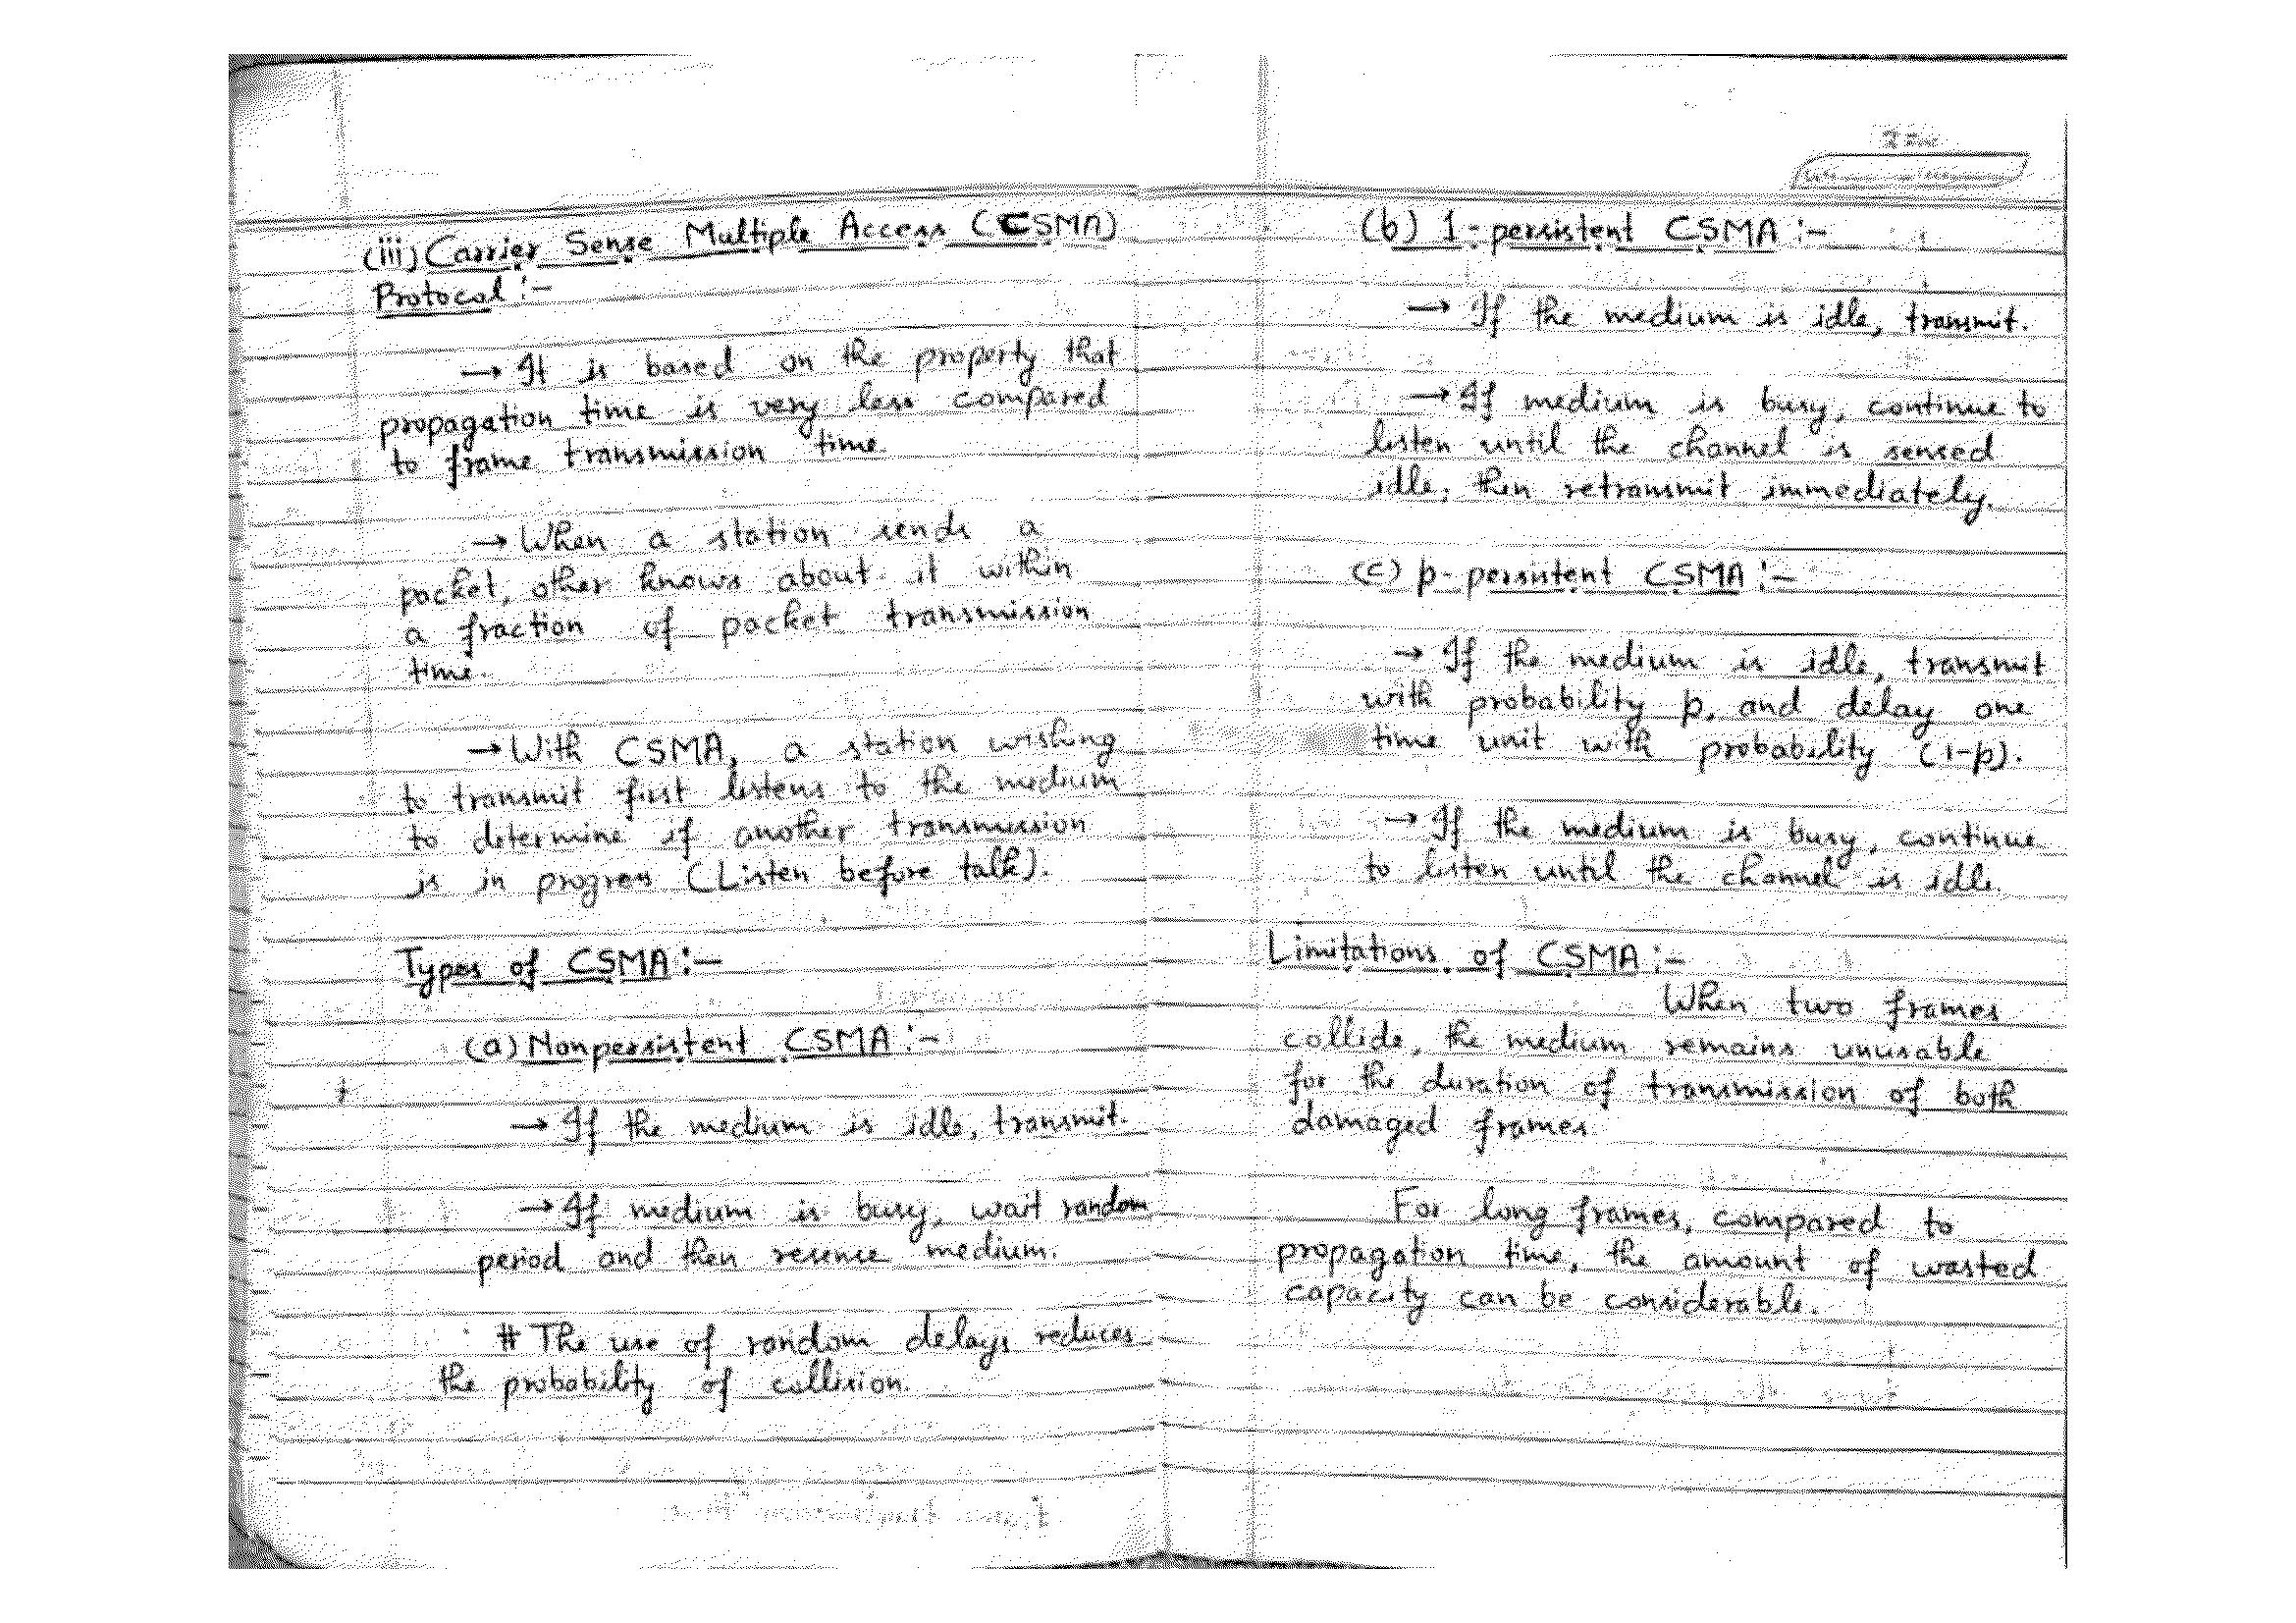 (iii) Carrier Sense Multiple Access (CSMA)
Protocol :-
→ It is based on the property that
propagation time is very less compared
to frame transmission time.
→ When a station sends a
packet, other knows about it within
a fraction of packet transmission
time.
→ With CSMA, a station wishing
to transmit first listens to the medium
to determine if another transmission
is in progress (Listen before talk).
Types of CSMA :-
(a) Nonpersistent CSMA :-
→ If the medium is idle, transmit.
→ If medium is busy, wait random
period and then resense medium.
# The use of random delays reduces
the probability of collision.
(b) 1-persistent CSMA :-
→ If the medium is idle, transmit.
→ If medium is busy, continue to
listen until the channel is sensed
idle, then retransmit immediately.
(c) p-persistent CSMA :-
→ If the medium is idle, transmit
with probability p, and delay one
time unit with probability (1-p).
→ If the medium is busy, continue
to listen until the channel is idle.
Limitations of CSMA :-
When two frames
collide, the medium remains unusable
for the duration of transmission of both
damaged frames
For long frames, compared to
propagation time, the amount of wasted
capacity can be considerable.